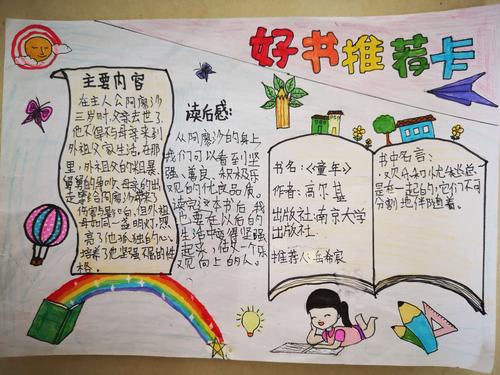 好书推荐卡
主要内容
在主人公阿廖沙
三岁时,父亲去世了。
他不得不与母亲来到
外祖父家生活,在那
里,外祖父的粗暴、
舅舅的争吵、母亲的出
走等给阿廖沙带来了
伤害与影响,但外祖
母如同一盏明灯,照
亮了他孤独的心,
培养了他坚强不屈的性
格。
读后感:
从阿廖沙的身上,
我们可以看到坚
强、善良、积极乐
观的优良品质。
读完这本书后,我
也要在以后的
生活中变得坚强
起来,做一个乐
观向上的人。
书名:《童年》
作者:高尔基
出版社:南京大学
出版社
推荐人:岳希宸
书中名言:
:欢乐和忧愁总
是在一起的,它们不可
分割地伴随着。